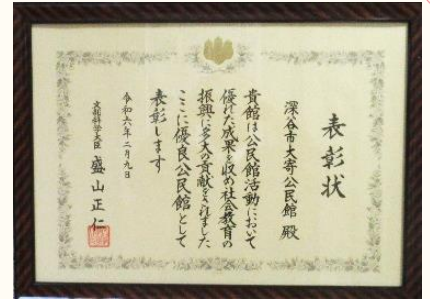 表彰状
深谷市大寄公民館 殿
貴館は公民館活動において
優れた成果を収め社会教育の
振興に多大の貢献をされました
ここに優良公民館として
表彰します
令和六年二月九日
文部科学大臣 盛山正仁